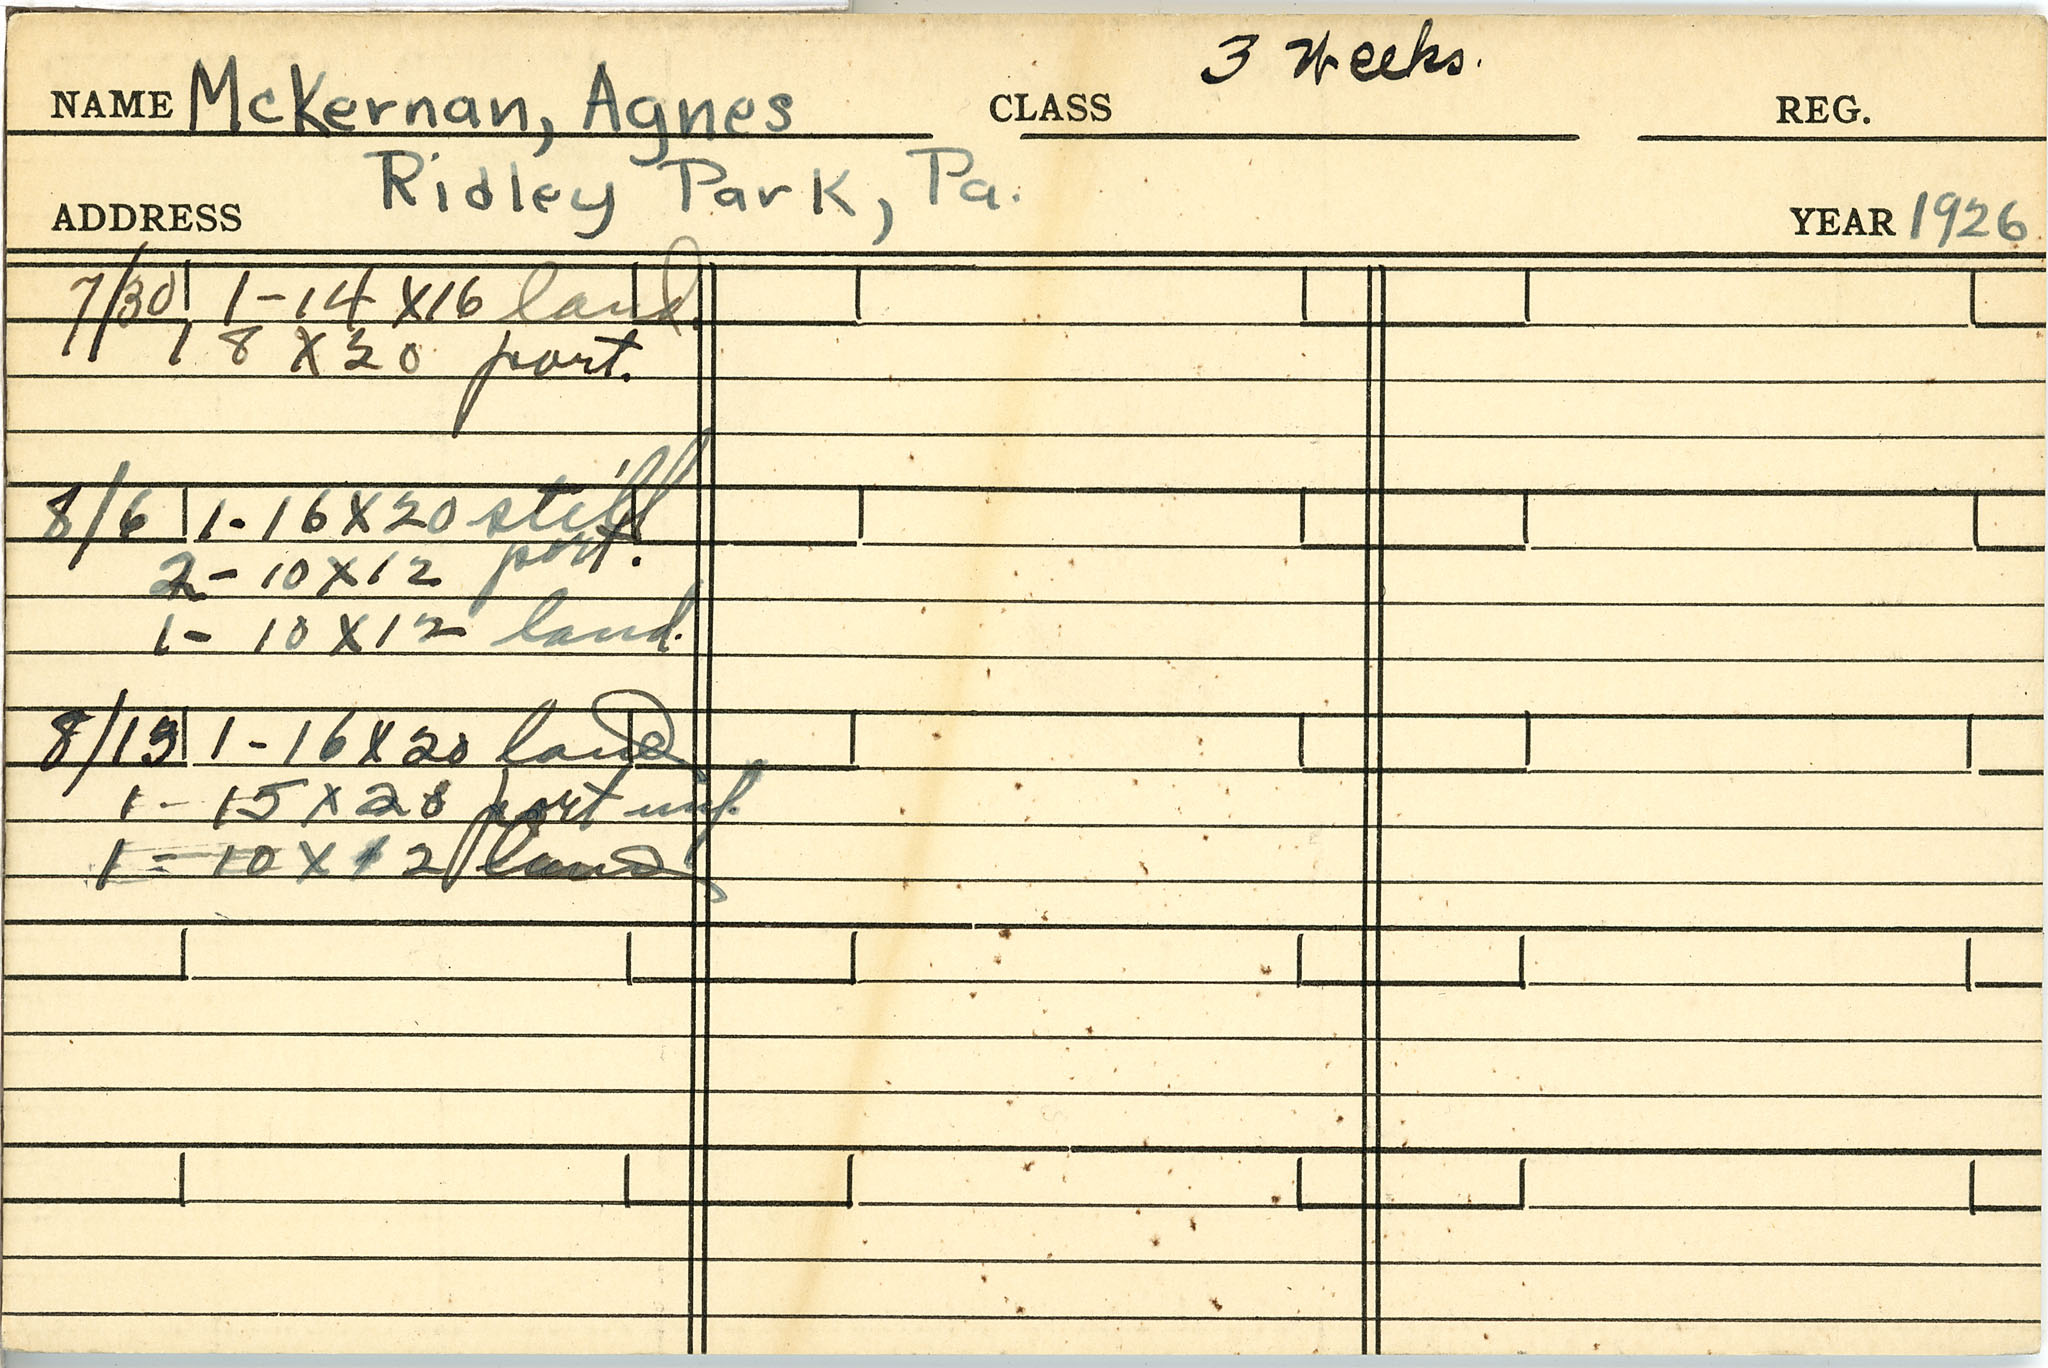 3 Weeks.
NAME McKernan, Agnes CLASS REG.
Ridley Park, Pa.
ADDRESS YEAR 1926
7/30 1-14 X16 land.
1 8 X 20 port.
8/6 1-16 X 20 still
2-10 X 12 port.
1-10 X 12 land.
8/13 1-16 X 20 land
1-15 X 20 port unf.
1-10 X 12 land